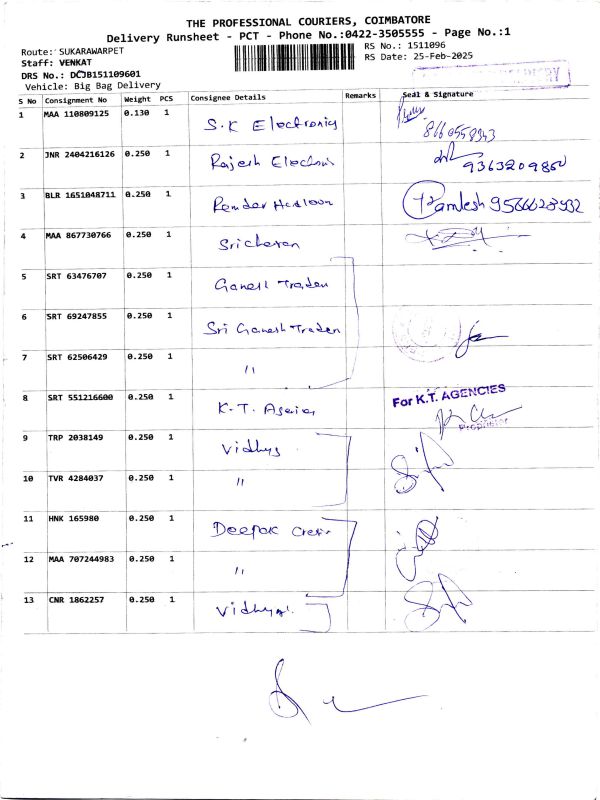 THE PROFESSIONAL COURIERS, COIMBATORE
Delivery Runsheet - PCT - Phone No.:0422-3505555 - Page No.:1
Route: SUKARAWARPET
RS No.: 1511096
Staff: VENKAT
RS Date: 25-Feb-2025
DRS No.: DCJB151109601
Vehicle: Big Bag Delivery
S No Consignment No Weight PCS Consignee Details Remarks Seal & Signature
1 MAA 110809125 0.130 1 S.K Electronics 8660558343
2 JNR 2404216126 0.250 1 Rajesh 9363209860
3 BLR 1651048711 0.250 1 Kamlesh 9566628932
4 MAA 867730766 0.250 1 Sricharan
5 SRT 63476707 0.250 1 Ganesh Traders
6 SRT 69247855 0.250 1 Sri Ganesh Traders
7 SRT 62506429 0.250 1 "
8 SRT 551216600 0.250 1 K.T. For K.T. AGENCIES
Proprietor
9 TRP 2038149 0.250 1 Vidhya
10 TVR 4284037 0.250 1 "
11 HNK 165980 0.250 1 Deepak
12 MAA 707244983 0.250 1 "
13 CNR 1862257 0.250 1 Vidhya